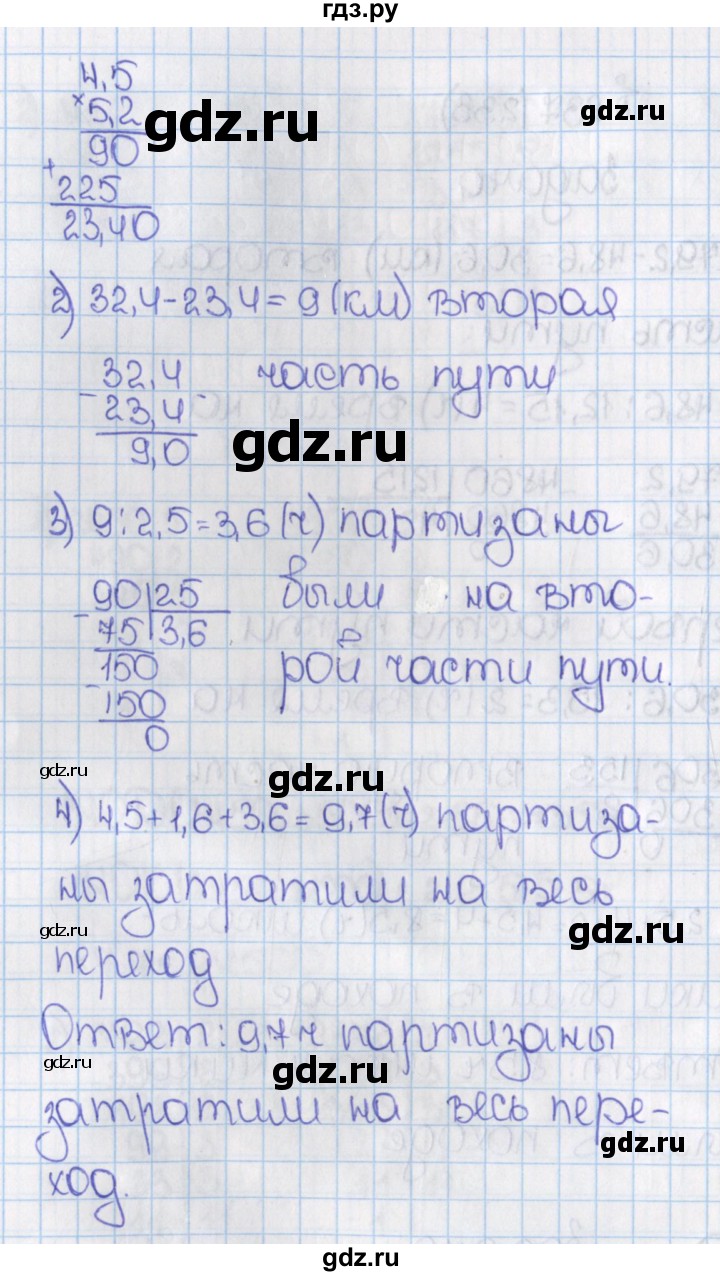 гдз.ру
4,5
×5,2
gdz.ru
gdz.ru
90
+
225
23,40
2) 32,4-23,4=9(км) вторая
32,4 часть пути
- 23,4
gdz.ru
9,0
3) 9:2,5=3,6(ч) партизаны
90|25 были на вто-
- 75|3,6
150 рой части пути.
- 150
0
gdz.ru
gdz.ru
4) 4,5+1,6+3,6=9,7(ч) партиза-
ны затратили на весь
gdz.ru
gdz.ru
переход
Ответ: 9,7ч партизаны
gdz.ru
gdz.ru
затратили на весь пере-
gdz.ru
ход.
gdz.ru